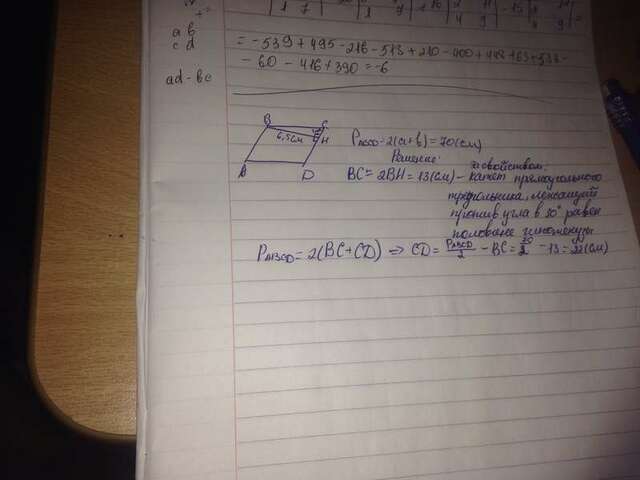 a b
c d
ad-bc
= -539+495-216-513+210-400+448+63+538-
-60-416+390=-6
B C
6,5см H
A D
P_ABCD=2(a+b)=70(см)
Решение:
за свойством:
BC=2BH=13(см)- катет прямоугольного
треугольника, лежащий
против угла в 30° равен
половине гипотенузы
P_ABCD=2(BC+CD) => CD= P_ABCD/2 - BC= 70/2 -13=22(см)